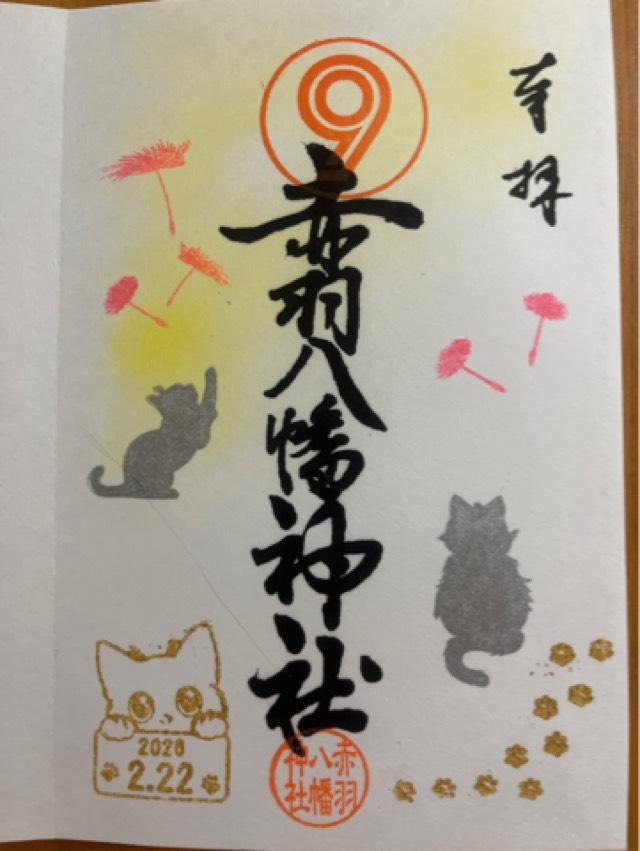 奉拝
赤羽八幡神社
2.22
赤羽
八幡
神社